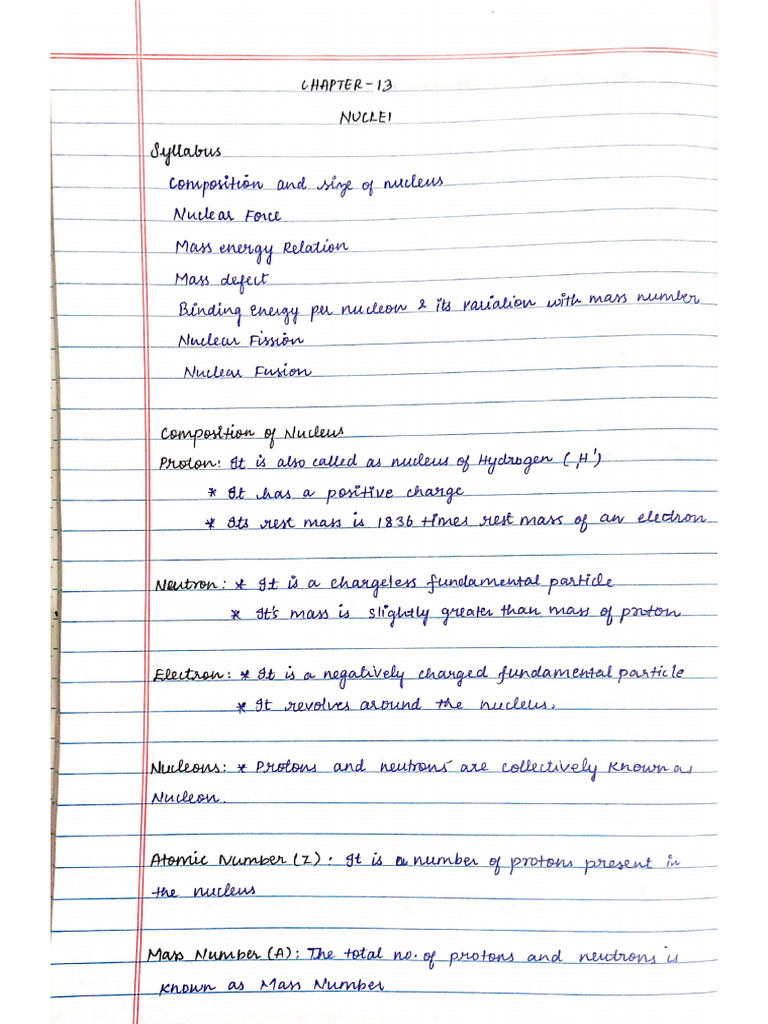 CHAPTER-13
NUCLEI
Syllabus
Composition and size of nucleus
Nuclear Force
Mass energy Relation
Mass defect
Binding energy per nucleon & its variation with mass number
Nuclear Fission
Nuclear Fusion
Composition of Nucleus
Proton: It is also called as nucleus of Hydrogen (₁H¹)
* It has a positive charge
* Its rest mass is 1836 times rest mass of an electron
Neutron: * It is a chargeless fundamental particle
* It's mass is slightly greater than mass of proton
Electron: * It is a negatively charged fundamental particle
* It revolves around the nucleus.
Nucleons: * Protons and neutrons are collectively known as
Nucleon.
Atomic Number (Z). It is a number of protons present in
the nucleus
Mass Number (A): The total no. of protons and neutrons is
known as Mass Number